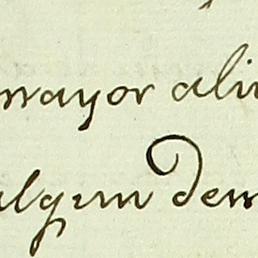 mayor ali
algun dem